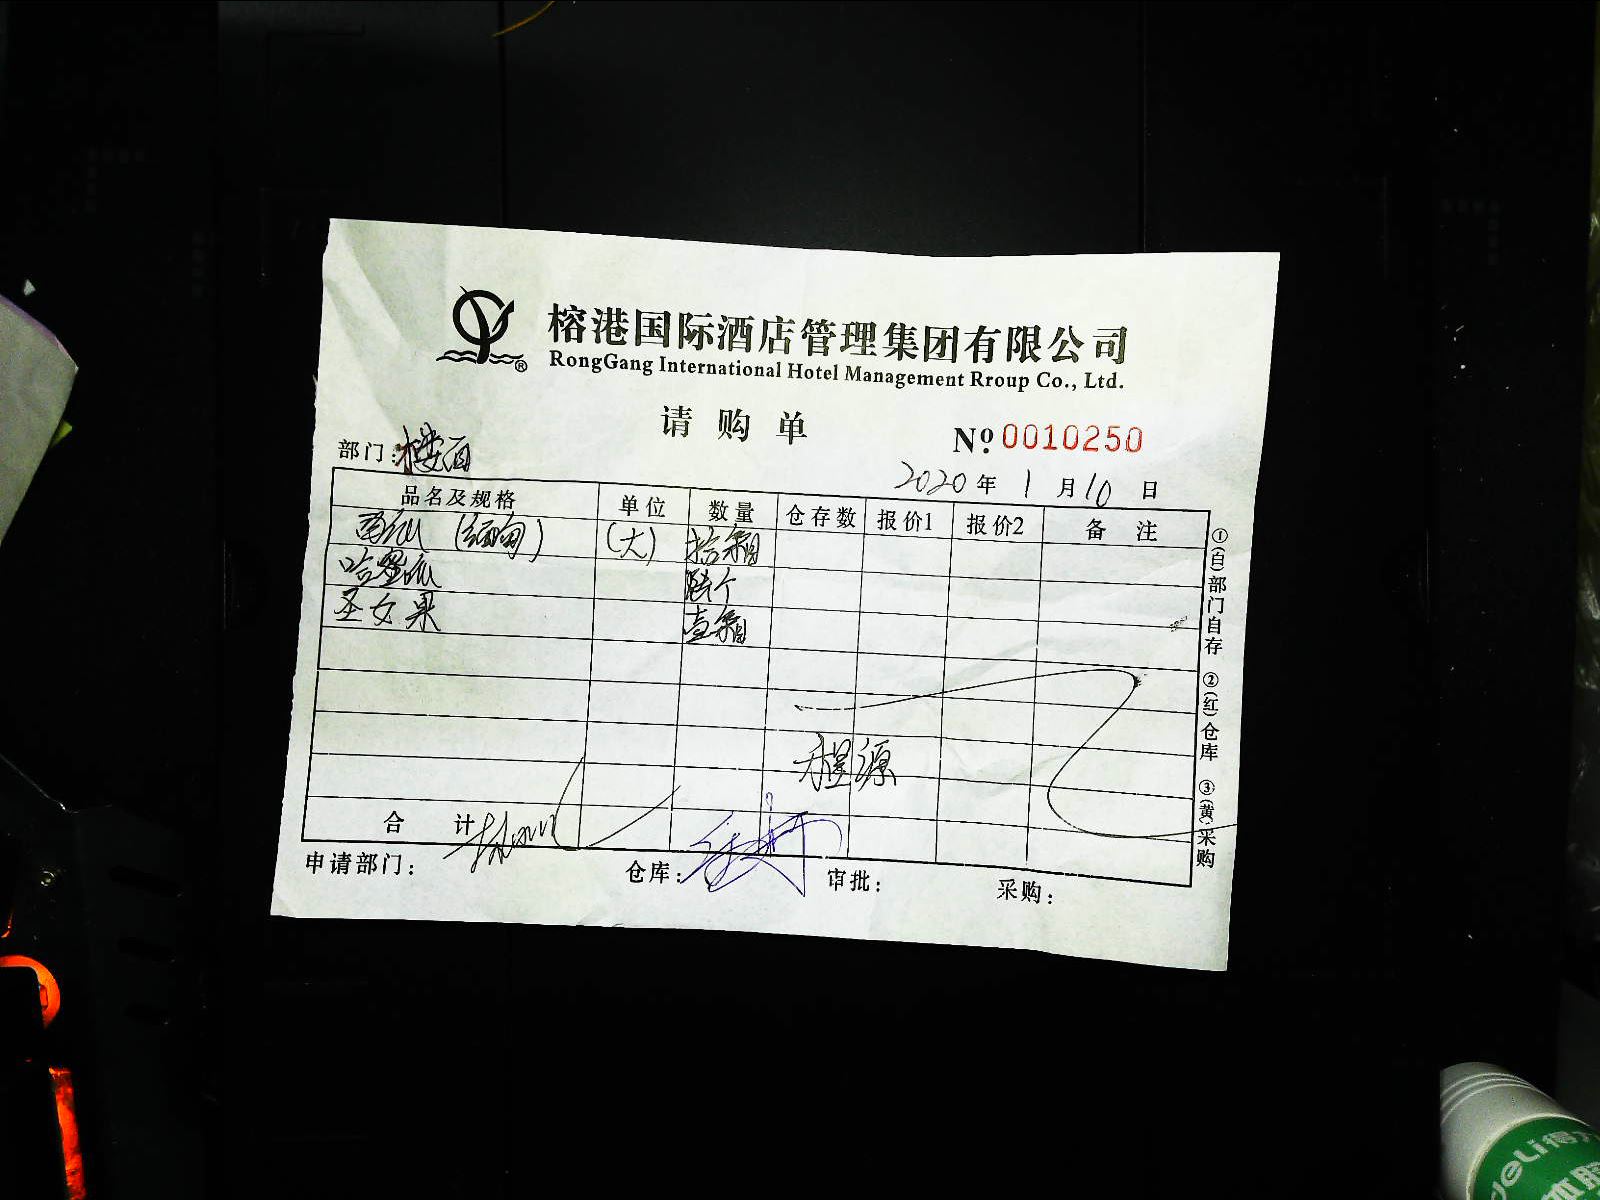 榕港国际酒店管理集团有限公司
RongGang International Hotel Management Rroup Co., Ltd.
请购单
№ 0010250
部门：楼面
2020年1月10日
品名及规格 单位 数量 仓存数 报价1 报价2 备注
西瓜（缅甸） （大） 拾箱
哈密瓜 陆个
圣女果 壹箱
程源
合计
申请部门： 仓库： 审批： 采购：
①(白)部门自存 ②(红)仓库 ③(黄)采购
deli得力